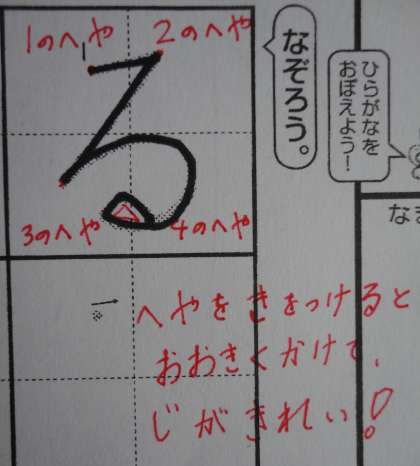 ひらがなを
おぼえよう！
なぞろう。
1のへや
2のへや
る
3のへや
4のへや
へやをきをつけると
おおきくかけて、
じがきれい！